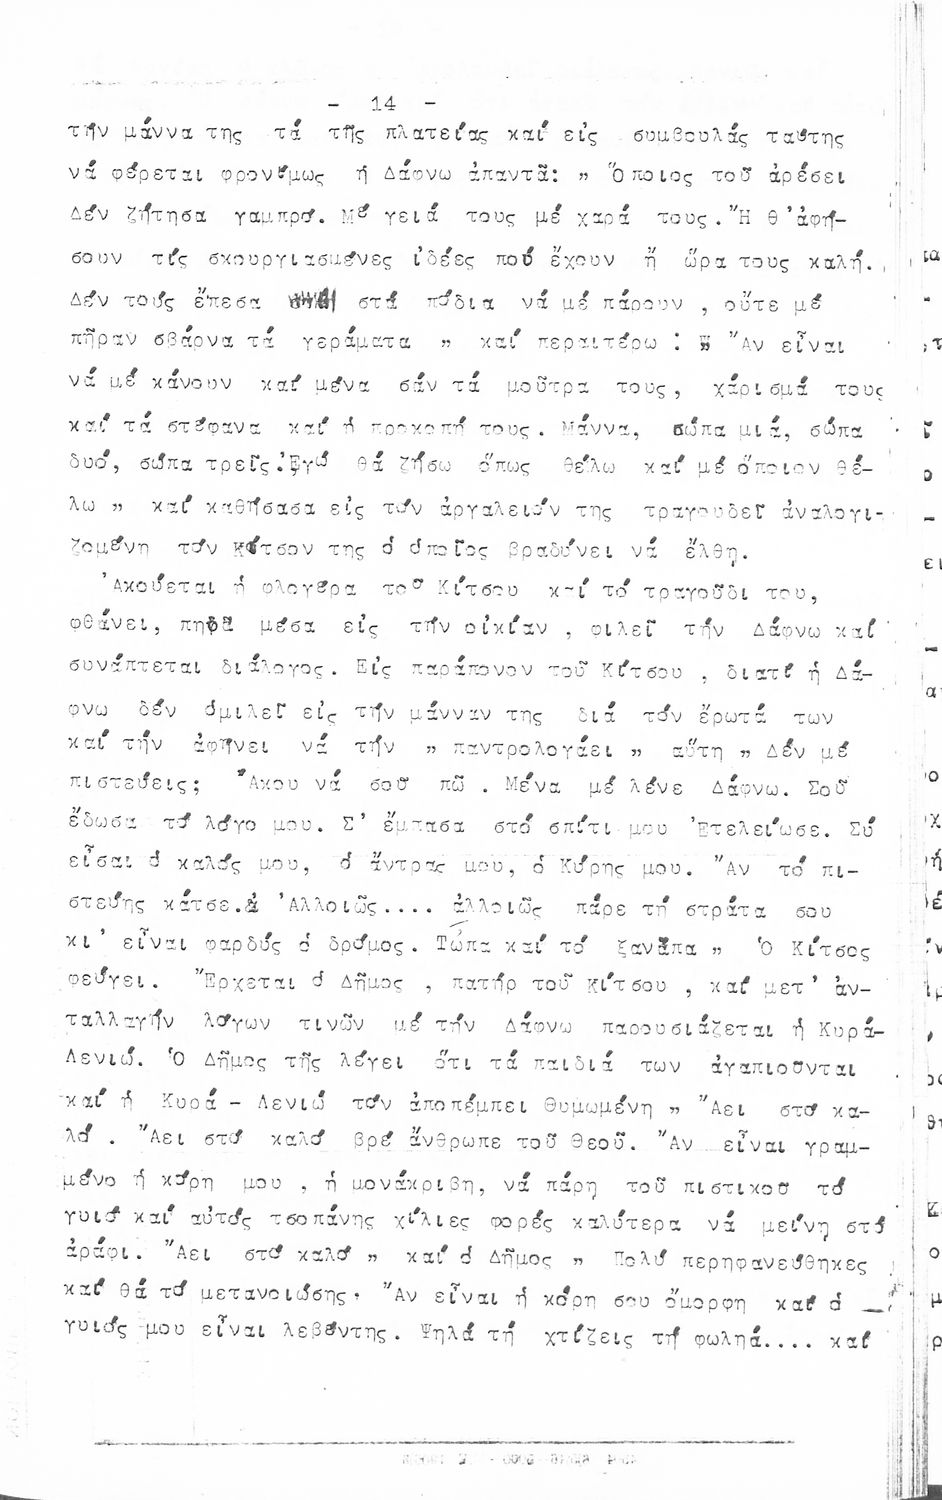 - 14 -
τήν μάννα της τά τῆς πλατείας καί εἰς συμβουλάς ταύτης
νά φέρεται φρονίμως ἡ Δάφνω ἀπαντᾶ: " Ὅποιος τοῦ ἀρέσει
Δέν ζήτησα γαμπρό. Μέ γειά τους μέ χαρά τους. Ἤ θ' ἀφή-
σουν τίς σκουργιασμένες ἰδέες πού ἔχουν ἤ ὥρα τους καλή.
Δέν τούς ἔπεσα στά πόδια νά μέ πάρουν , οὔτε μέ
πῆραν σβάρνα τά γεράματα " καί περαιτέρω : " Ἄν εἶναι
νά μέ κάνουν καί μένα σάν τά μοῦτρα τους, χάρισμά τους
καί τά στέφανα καί ἡ προκοπή τους. Μάννα, σώπα μιά, σώπα
δυό, σώπα τρεῖς. Ἐγώ θά ζήσω ὅπως θέλω καί μέ ὅποιον θέ-
λω " καί καθήσασα εἰς τόν ἀργαλειόν της τραγουδεῖ ἀναλογι-
ζομένη τόν Κίτσον της ὁ ὁποῖος βραδύνει νά ἔλθη.
Ἀκούεται ἡ φλογέρα τοῦ Κίτσου καί τό τραγοῦδι του,
φθάνει, πηδᾶ μέσα εἰς τήν οἰκίαν , φιλεῖ τήν Δάφνω καί
συνάπτεται διάλογος. Εἰς παράπονον τοῦ Κίτσου , διατί ἡ Δά-
φνω δέν ὁμιλεῖ εἰς τήν μάνναν της διά τόν ἔρωτά των
καί τήν ἀφήνει νά τήν " παντρολογάει " αὕτη " Δέν μέ
πιστεύεις; Ἄκου νά σοῦ πῶ . Μένα μέ λένε Δάφνω. Σοῦ
ἔδωσα τό λόγο μου. Σ' ἔμπασα στό σπίτι μου Ἐτελείωσε. Σύ
εἶσαι ὁ καλός μου, ὁ ἄντρας μου, ὁ Κύρης μου. Ἄν τό πι-
στεύης κάτσε. Ἀλλοιῶς.... ἀλλοιῶς πάρε τή στράτα σου
κι' εἶναι φαρδύς ὁ δρόμος. Τὤπα καί τό ξανάπα " Ὁ Κίτσος
φεύγει. Ἔρχεται ὁ Δῆμος , πατήρ τοῦ Κίτσου , καί μετ' ἀν-
ταλλαγήν λόγων τινῶν μέ τήν Δάφνω παρουσιάζεται ἡ Κυρά-
Λενιώ. Ὁ Δῆμος τῆς λέγει ὅτι τά παιδιά των ἀγαπιοῦνται
καί ἡ Κυρά - Λενιώ τόν ἀποπέμπει θυμωμένη " Ἄει στό κα-
λό . Ἄει στό καλό βρέ ἄνθρωπε τοῦ Θεοῦ. Ἄν εἶναι γραμ-
μένο ἡ κόρη μου , ἡ μονάκριβη, νά πάρη τοῦ πιστικοῦ τό
γυιό καί αὐτός τσοπάνης χίλιες φορές καλύτερα νά μείνη στό
ἀράφι. Ἄει στό καλό " καί ὁ Δῆμος " Πολύ περηφανεύθηκες
καί θά τό μετανοιώσης. Ἄν εἶναι ἡ κόρη σου ὄμορφη καί ὁ
γυιός μου εἶναι λεβέντης. Ψηλά τή χτίζεις τή φωληά.... καί